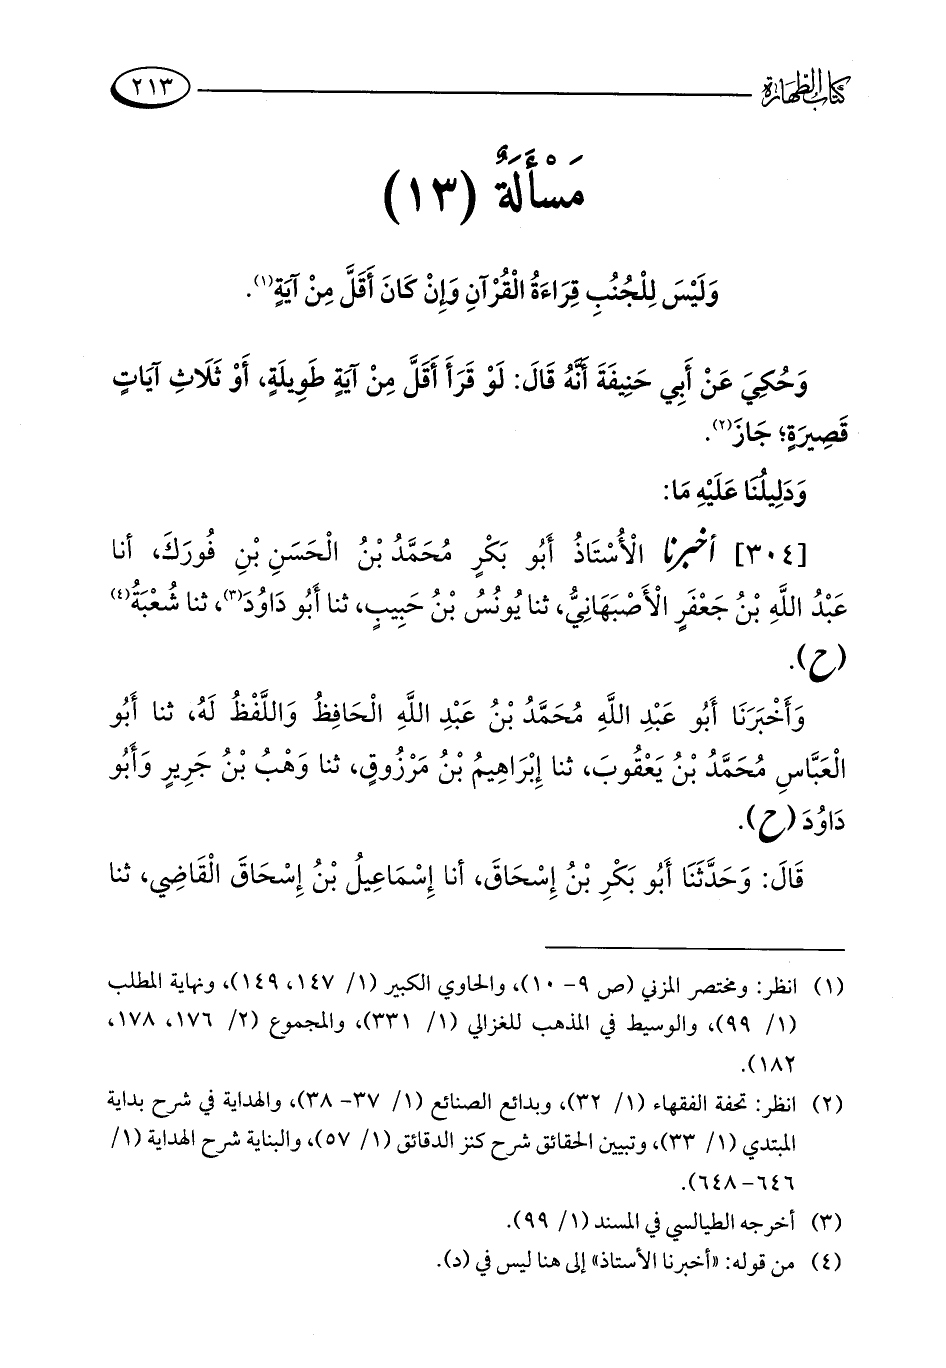 كتاب الطهارة ٢١٣
مَسْأَلَةٌ (١٣)
وَلَيْسَ لِلْجُنُبِ قِرَاءَةُ الْقُرْآنِ وَإِنْ كَانَ أَقَلَّ مِنْ آيَةٍ(١).
وَحُكِيَ عَنْ أَبِي حَنِيفَةَ أَنَّهُ قَالَ: لَوْ قَرَأَ أَقَلَّ مِنْ آيَةٍ طَوِيلَةٍ، أَوْ ثَلَاثِ آيَاتٍ
قَصِيرَةٍ؛ جَازَ(٢).
وَدَلِيلُنَا عَلَيْهِ مَا:
[٣٠٤] أخبرنا الْأُسْتَاذُ أَبُو بَكْرٍ مُحَمَّدُ بْنُ الْحَسَنِ بْنِ فُورَكَ، أنا
عَبْدُ اللَّهِ بْنُ جَعْفَرٍ الْأَصْبَهَانِيُّ، ثنا يُونُسُ بْنُ حَبِيبٍ، ثنا أَبُو دَاوُدَ(٣)، ثنا شُعْبَةُ(٤)
(ح).
وَأَخْبَرَنَا أَبُو عَبْدِ اللَّهِ مُحَمَّدُ بْنُ عَبْدِ اللَّهِ الْحَافِظُ وَاللَّفْظُ لَهُ، ثنا أَبُو
الْعَبَّاسِ مُحَمَّدُ بْنُ يَعْقُوبَ، ثنا إِبْرَاهِيمُ بْنُ مَرْزُوقٍ، ثنا وَهْبُ بْنُ جَرِيرٍ وَأَبُو
دَاوُدَ (ح).
قَالَ: وَحَدَّثَنَا أَبُو بَكْرِ بْنُ إِسْحَاقَ، أنا إِسْمَاعِيلُ بْنُ إِسْحَاقَ الْقَاضِي، ثنا
(١) انظر: ومختصر المزني (ص ٩- ١٠)، والحاوي الكبير (١/ ١٤٧، ١٤٩)، ونهاية المطلب
(١/ ٩٩)، والوسيط في المذهب للغزالي (١/ ٣٣١)، والمجموع (٢/ ١٧٦، ١٧٨،
١٨٢).
(٢) انظر: تحفة الفقهاء (١/ ٣٢)، وبدائع الصنائع (١/ ٣٧- ٣٨)، والهداية في شرح بداية
المبتدي (١/ ٣٣)، وتبيين الحقائق شرح كنز الدقائق (١/ ٥٧)، والبناية شرح الهداية (١/
٦٤٦- ٦٤٨).
(٣) أخرجه الطيالسي في المسند (١/ ٩٩).
(٤) من قوله: «أخبرنا الأستاذ» إلى هنا ليس في (د).